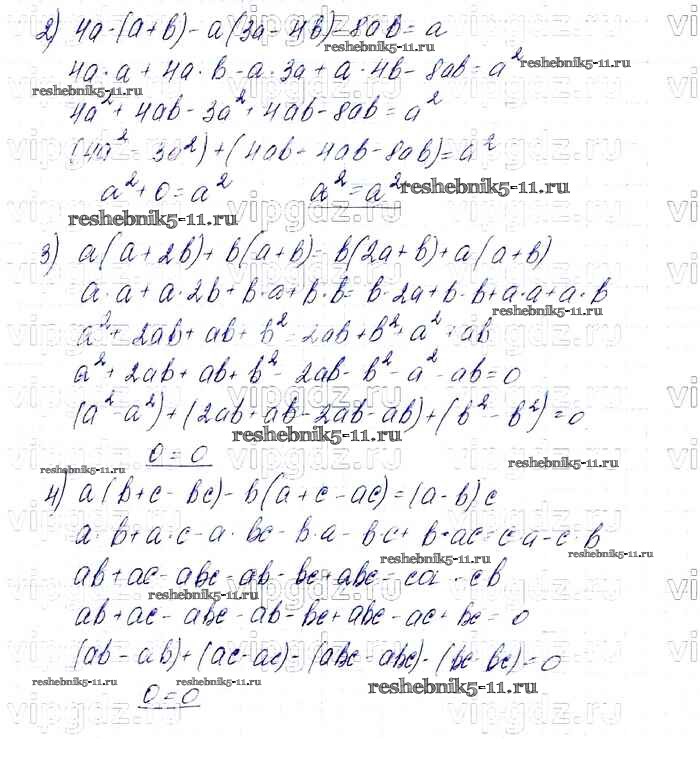 2) 4a·(a+b)-a(3a-4b)-8ab=a
4a·a+4a·b-a·3a+a·4b-8ab=a²
4a²+4ab-3a²+4ab-8ab=a²
(4a²-3a²)+(4ab-4ab-8ab)=a²
a²+0=a² a²=a²
3) a(a+2b)+b(a+b)=b(2a+b)+a(a+b)
a·a+a·2b+b·a+b·b=b·2a+b·b+a·a+a·b
a²+2ab+ab+b²=2ab+b²+a²+ab
a²+2ab+ab+b²-2ab-b²-a²-ab=0
(a²-a²)+(2ab+ab-2ab-ab)+(b²-b²)=0
0=0
4) a(b+c-bc)-b(a+c-ac)=(a-b)c
a·b+a·c-a·bc-b·a-b·c+b·ac=c·a-c·b
ab+ac-abc-ab-bc+abc=ca-cb
ab+ac-abc-ab-bc+abc-ac+bc=0
(ab-ab)+(ac-ac)-(abc-abc)-(bc-bc)=0
0=0
reshebnik5-11.ru
vipgdz.ru